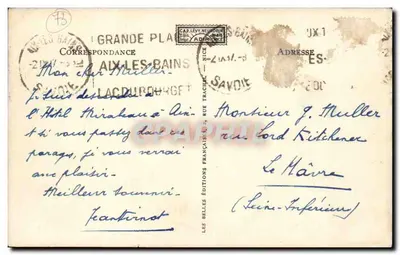 GRANDE PLAGE
AIX-LES-BAINS
LAC DU BOURGET
SAVOIE
CORRESPONDANCE
ADRESSE
Mon cher Muller
Je suis descendu à
l'Hôtel Mirabeau à Aix
si vous passez dans ces
parages, je vous verrai
avec plaisir.
Meilleur souvenir
LES BELLES ÉDITIONS FRANÇAISES
Monsieur J. Muller
rue Lord Kitchener
Le Hâvre
(Seine-Inférieure)